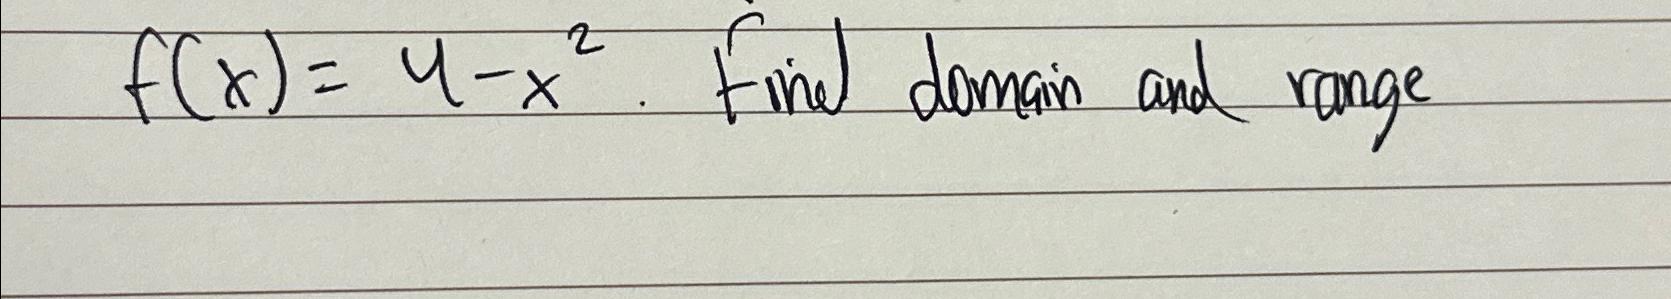 f(x) = 4 - x². Find domain and range